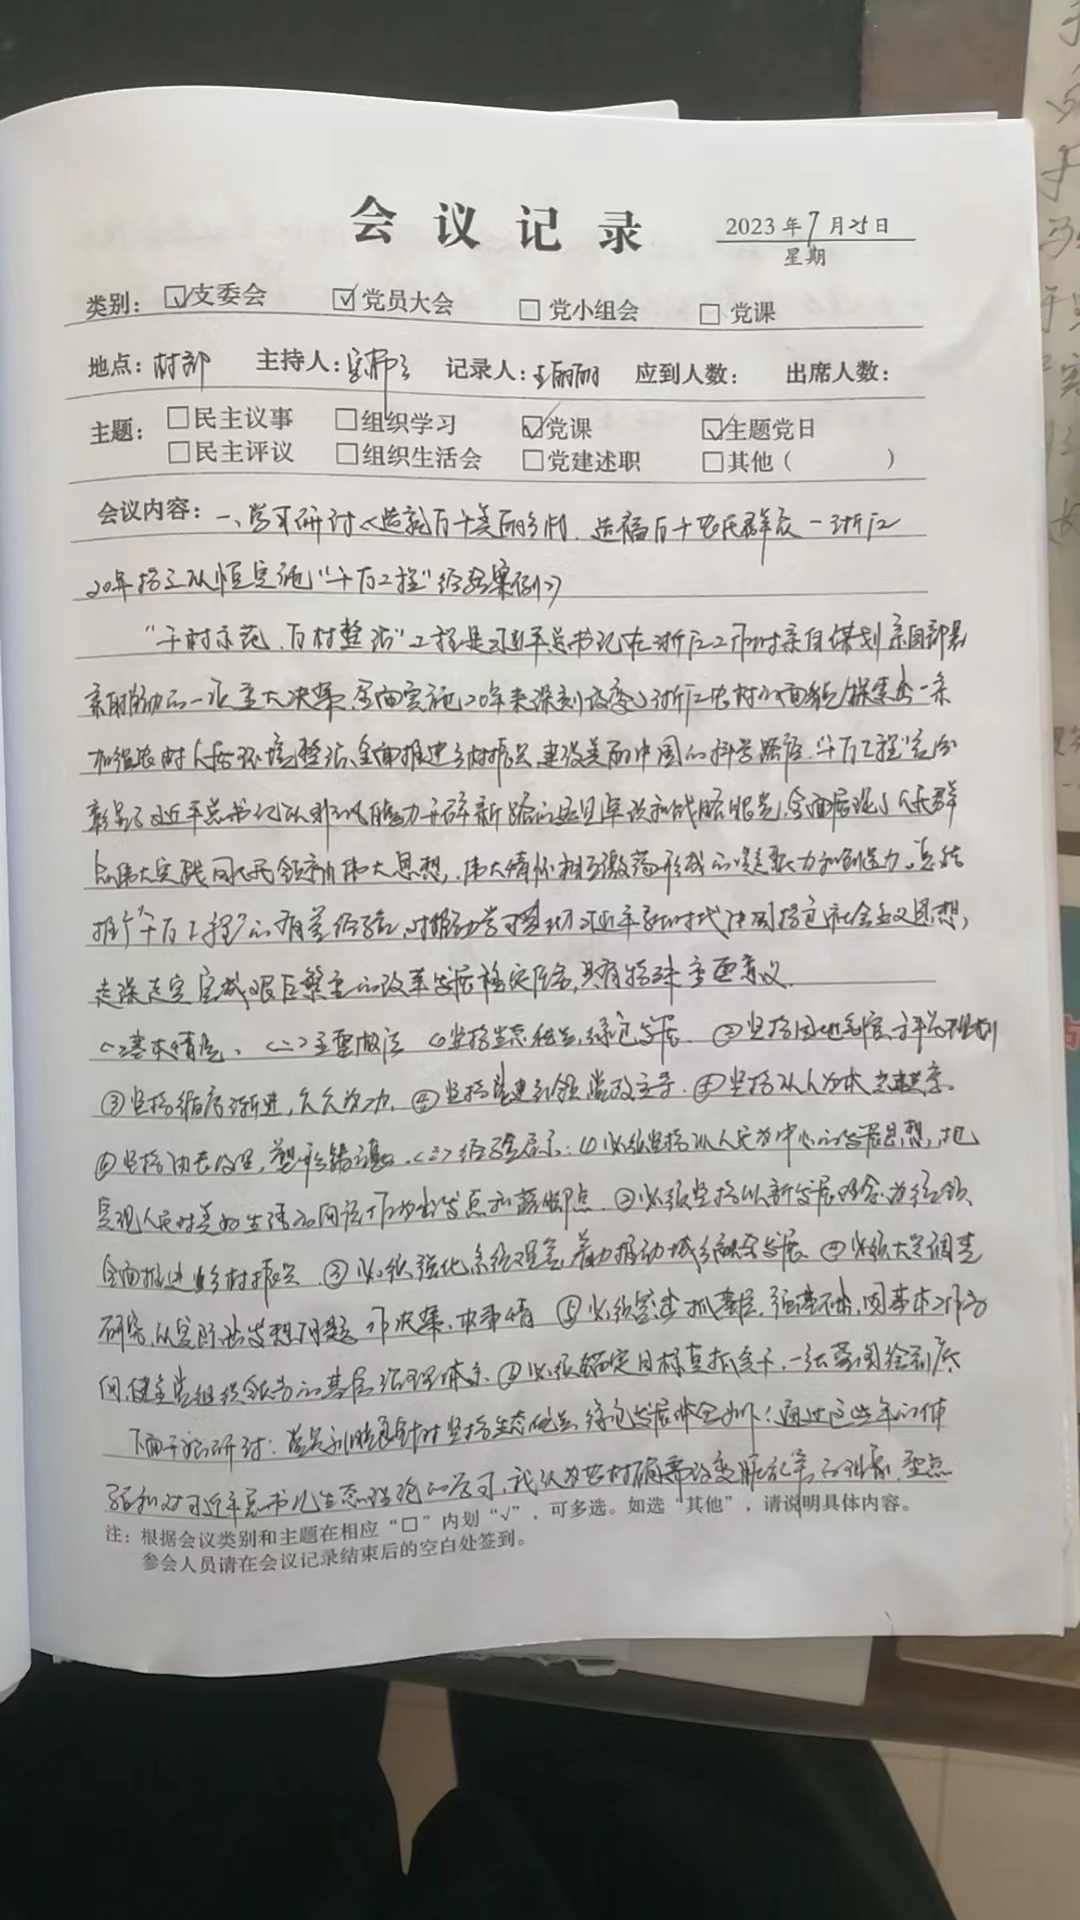 会议记录
2023年7月25日
星期
类别：☑支委会 ☑党员大会 □党小组会 □党课
地点：村部 主持人： 记录人：王丽丽 应到人数： 出席人数：
主题：□民主议事 □组织学习 ☑党课 ☑主题党日
□民主评议 □组织生活会 □党建述职 □其他（ ）
会议内容：一、学习研讨《造就万千美丽乡村，造福万千农民群众—浙江
20年持之以恒实施“千万工程”经验案例》
“千村示范、万村整治”工程是习近平总书记在浙江工作时亲自谋划亲自部署
亲自推动的一项重大决策，全面实施20年来深刻改变了浙江农村的面貌，探索出一条
加强农村人居环境整治，全面推进乡村振兴，建设美丽中国的科学路径，“千万工程”充分
彰显了习近平总书记以非凡魄力开辟新路的远见卓识和战略眼光，全面展现了人民群
众伟大实践同人民领袖伟大思想，伟大情怀相互激荡形成的凝聚力和创造力。总结
推广“千万工程”的有益经验，对推动学习贯彻习近平新时代中国特色社会主义思想，
走深走实完成艰巨繁重的改革发展稳定任务，具有特殊重要意义。
（一）基本情况、（二）主要做法 ①坚持生态优先，绿色发展. ②坚持因地制宜，科学规划
③坚持循序渐进，久久为功，④坚持党建引领党政主导. ⑤坚持以人为本 共建共享。
⑥坚持由表及里，塑形铸魂。（三）经验启示：①必须坚持以人民为中心的发展思想，把
实现人民对美好生活的向往作为出发点和落脚点. ②必须坚持以新发展理念为统领，
全面推进乡村振兴 ③必须强化系统观念，着力推动城乡融合发展 ④必须大兴调查
研究，从实际出发想问题 作决策、办事情 ⑤必须突出抓基层，强基本，固基本工作导
向，健全党组织领导的基层治理体系. ⑥必须锚定目标真抓实干，一张蓝图绘到底
下面开始研讨：党员针对坚持生态优先，绿色发展体会如下：通过这些年的体
验和对习近平总书记生态理论的学习，我认为农村确需改变脏乱差的现象，重点
注：根据会议类别和主题在相应“□”内划“√”，可多选。如选“其他”，请说明具体内容。
参会人员请在会议记录结束后的空白处签到。